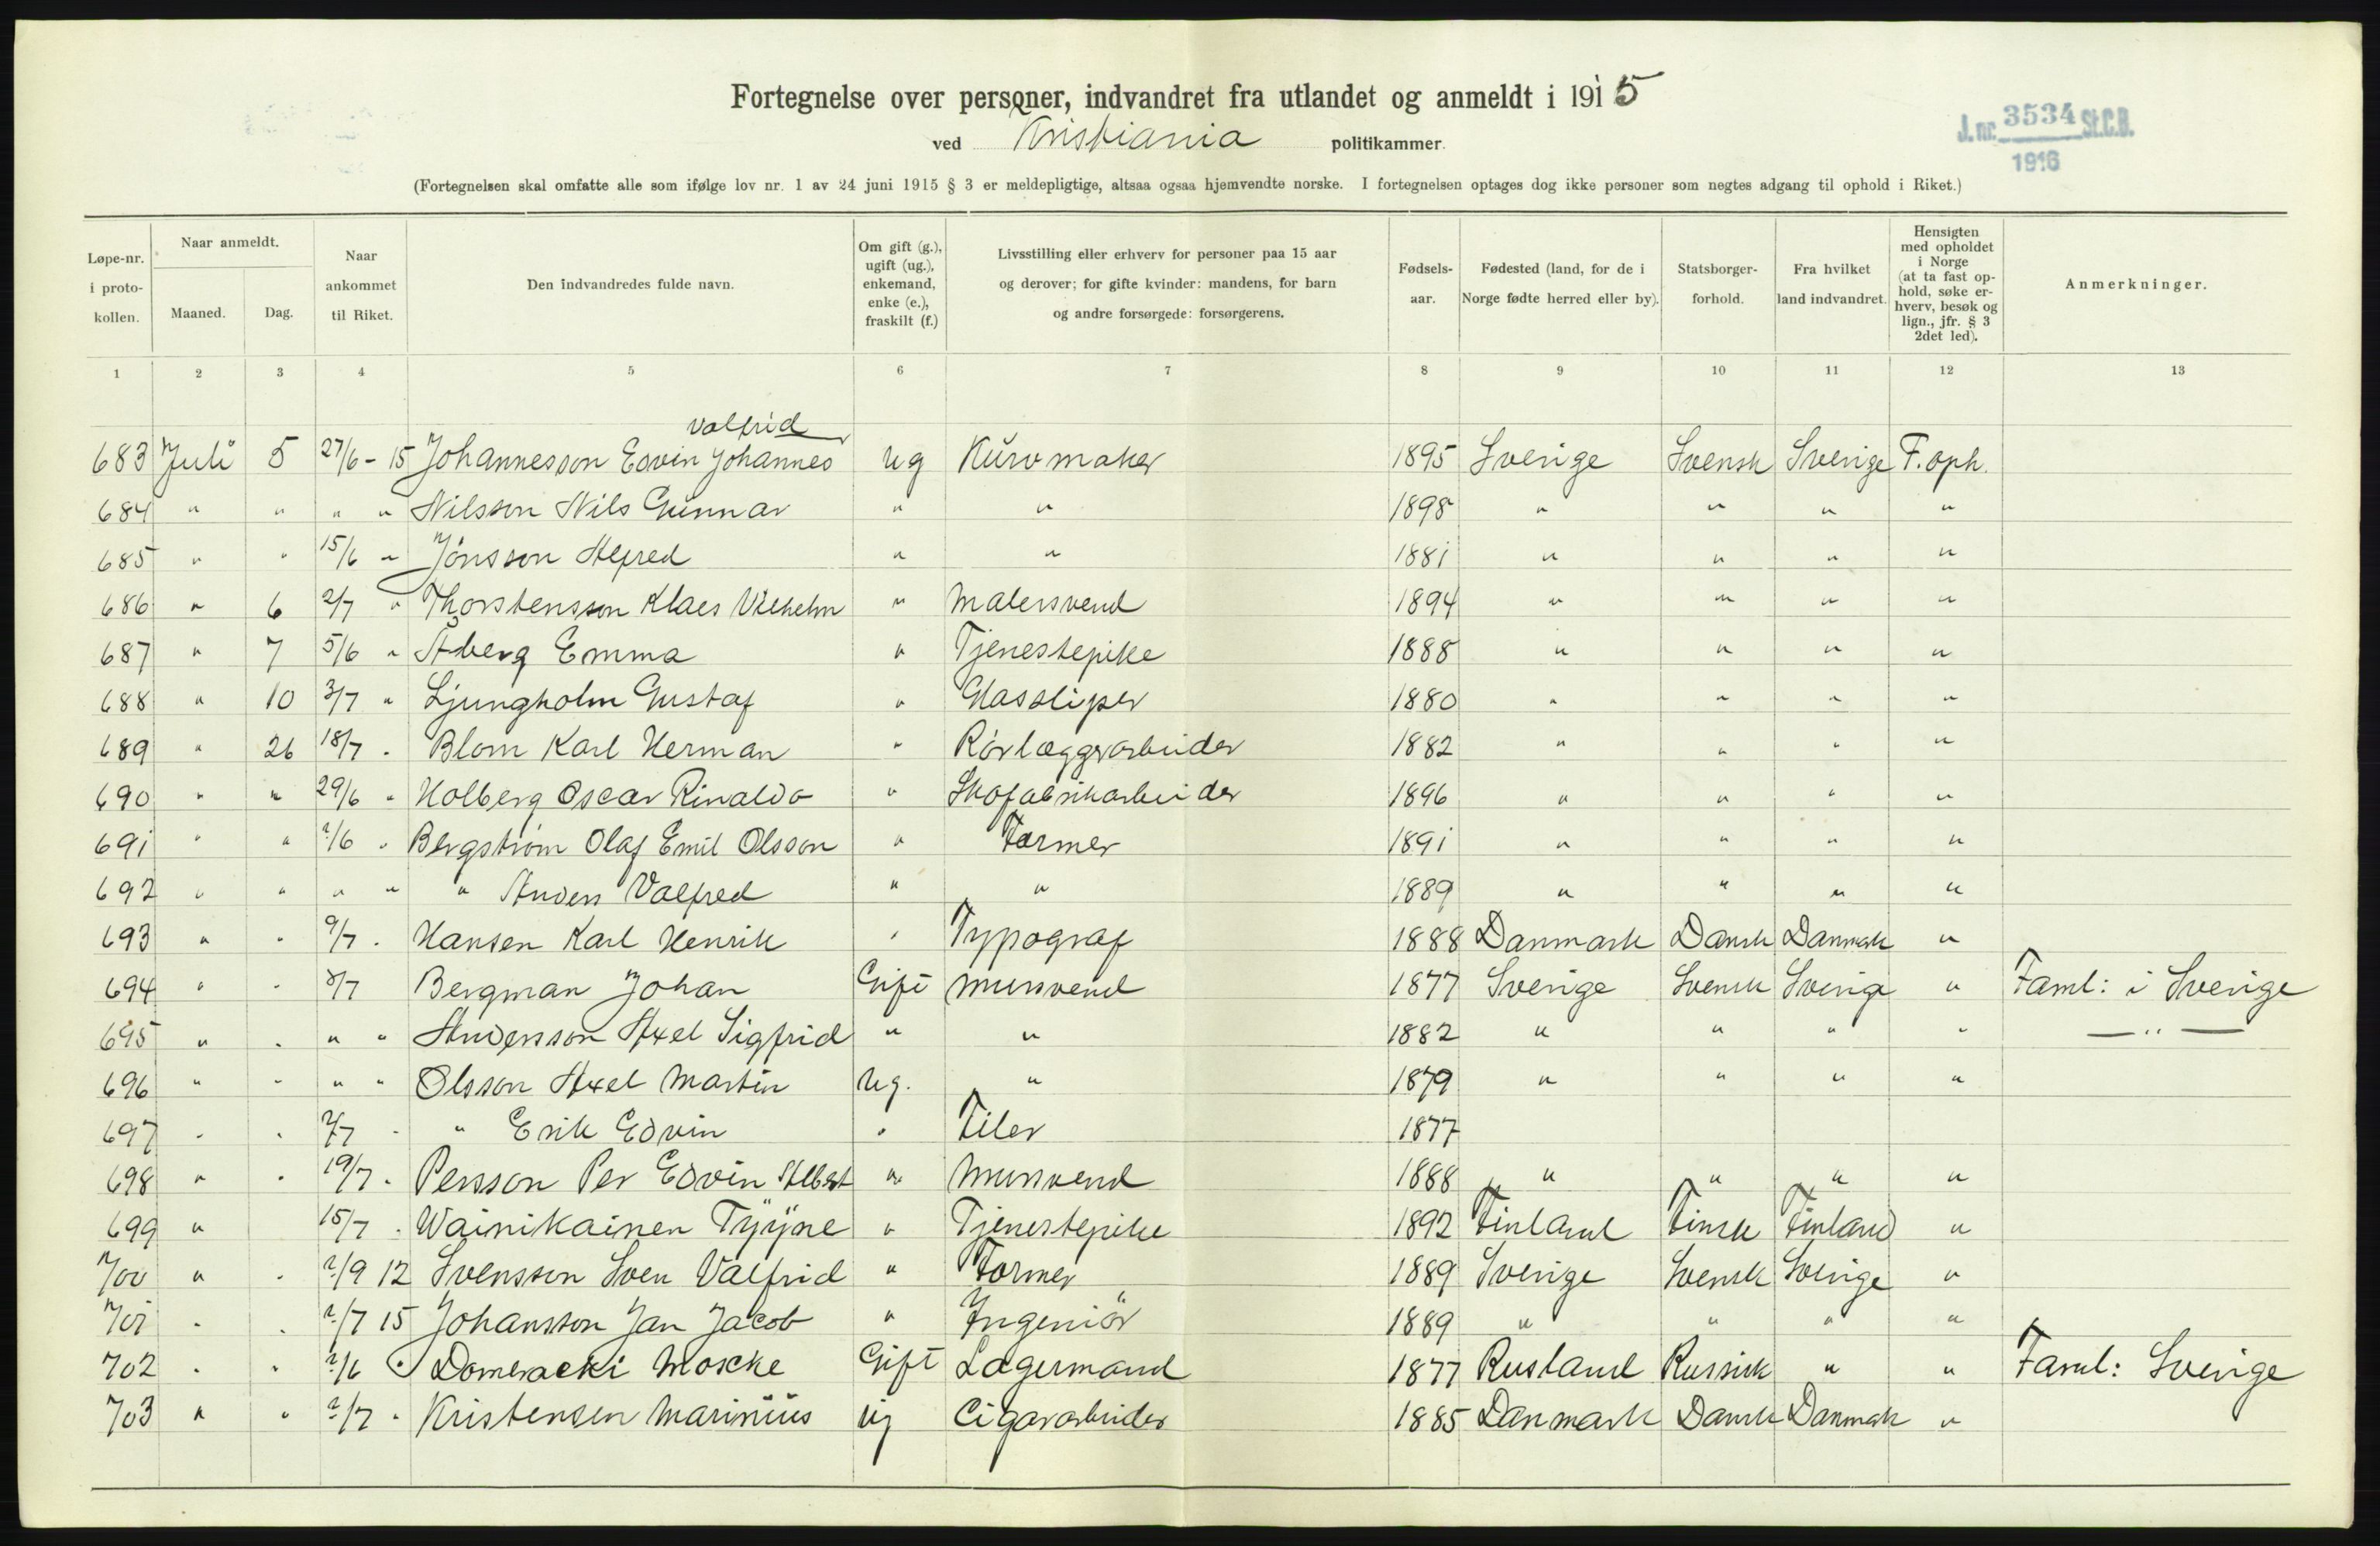 Fortegnelse over personer, indvandret fra utlandet og anmeldt i 1915
ved Kristiania politikammer.
J. nr. 3534 St.C.B.
1916
(Fortegnelsen skal omfatte alle som ifølge lov nr. 1 av 24 juni 1915 § 3 er meldepligtige, altsaa ogsaa hjemvendte norske. I fortegnelsen optages dog ikke personer som negtes adgang til ophold i Riket.)
Løpe-nr. i proto-kollen.
Naar anmeldt.
Maaned.
Dag.
Naar ankommet til Riket.
Den indvandredes fulde navn.
Om gift (g.), ugift (ug.), enkemand, enke (e.), fraskilt (f.)
Livsstilling eller erhverv for personer paa 15 aar og derover; for gifte kvinder: mandens, for barn og andre forsørgede: forsørgerens.
Fødsels-aar.
Fødested (land, for de i Norge fødte herred eller by).
Statsborger-forhold.
Fra hvilket land indvandret.
Hensigten med opholdet i Norge (at ta fast op-hold, søke er-hverv, besøk og lign., jfr. § 3 2det led).
Anmerkninger.
1 2 3 4 5 6 7 8 9 10 11 12 13
Valfrid
683 Juli 5 27/6 - 15 Johannesson Edvin Johannes ug Kurvmaker 1895 Sverige Svensk Sverige F. oph.
684 " " " " Nilsson Nils Gunnar " " 1898 " " " "
685 " " 15/6 " Jönsson Alfred " " 1881 " " " "
686 " 6 2/7 " Thorstensson Klaes Vilhelm " Malersvend 1894 " " " "
687 " 7 5/6 " Åberg Emma " Tjenestepike 1888 " " " "
688 " 10 3/7 " Ljungholm Gustaf " Glassliper 1880 " " " "
689 " 26 18/7 " Blom Karl Herman " Rörlæggerarbeider 1882 " " " "
690 " " 29/6 " Holberg Oscar Rinaldo " Skofabrikarbeider 1896 " " " "
691 " " ?/6 " Bergström Olaf Emil Olsson " Former 1891 " " " "
692 " " " " " Anders Valfred " " 1889 " " " "
693 " " 9/7 " Hansen Karl Henrik " Typograf 1888 Danmark Dansk Danmark "
694 " " 8/7 Bergman Johan Gift Mursvend 1877 Sverige Svensk Sverige " Faml: i Sverige
695 " " " " Andersson Axel Sigfrid " " 1882 " " " " — " —
696 " " " " Olsson Axel Martin Ug. " 1879 " " " "
697 " " 2/7 " " Erik Edvin " Filer 1877
698 " " 19/7 " Persson Per Edvin Albert " Mursvend 1888 " " " "
699 " 15/7 " Wainikainen Tyyne " Tjenestepike 1892 Finland Finsk Finland "
700 " " ?/9 12 Svensson Sven Valfrid " Former 1889 Sverige Svensk Sverige "
701 " " ?/7 15 Johansson Jan Jacob " Ingeniör 1889 " " " "
702 " " ?/6 " Domeracki Moscke Gift Lagermand 1877 Rusland Russisk " " Faml: Sverige
703 " " ?/7 " Kristensen Marinius ug Cigararbeider 1885 Danmark Dansk Danmark "